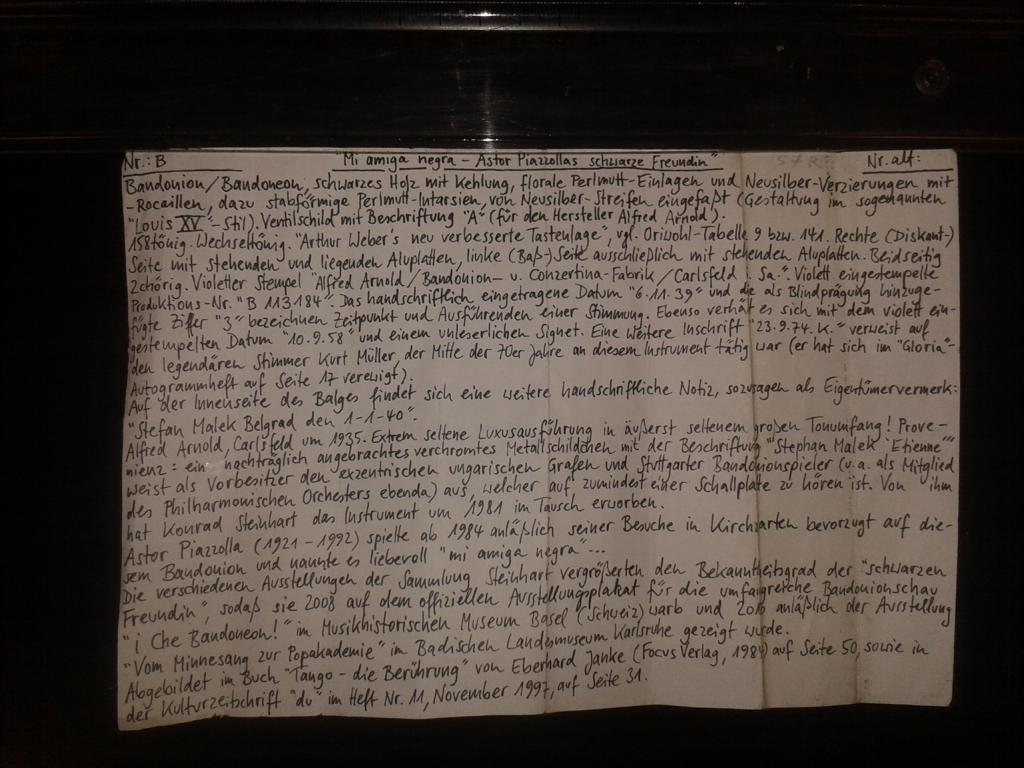 Nr.: B "Mi amiga negra - Astor Piazzollas schwarze Freundin" Nr. alt:
Bandonion/Bandoneon, schwarzes Holz mit Kehlung, florale Perlmutt-Einlagen und Neusilber-Verzierungen mit
-Rocaillen, dazu stabförmige Perlmutt-Intarsien, von Neusilber-Streifen eingefaßt (Gestaltung im sogenannten
"Louis XV"-Stil). Ventilschild mit Beschriftung "A" (für den Hersteller Alfred Arnold).
158tönig. Wechseltönig. "Arthur Weber's neu verbesserte Tastenlage", vgl. Oriwohl-Tabelle 9 bzw. 141. Rechte (Diskant-)
Seite mit stehenden und liegenden Aluplatten, linke (Baß-)Seite ausschließlich mit stehenden Aluplatten. Beidseitig
2chörig. Violetter Stempel "Alfred Arnold/Bandonion- u. Conzertina-Fabrik/Carlsfeld i. Sa.". Violett eingestempelte
Produktions-Nr. "B 113184". Das handschriftlich eingetragene Datum "6.11.39" und die als Blindprägung hinzuge-
fügte Ziffer "3" bezeichnen Zeitpunkt und Ausführenden einer Stimmung. Ebenso verhält es sich mit dem violett ein-
gestempelten Datum "10.9.58" und einem unleserlichen Signet. Eine weitere Inschrift "23.9.74. K." verweist auf
den legendären Stimmer Kurt Müller, der Mitte der 70er Jahre an diesem Instrument tätig war (er hat sich im "Gloria"-
Autogrammheft auf Seite 17 verewigt).
Auf der Innenseite des Balges findet sich eine weitere handschriftliche Notiz, sozusagen als Eigentümervermerk:
"Stefan Malek Belgrad den 1-1-40".
Alfred Arnold, Carlsfeld um 1935. Extrem seltene Luxusausführung in äußerst seltenem großen Tonumfang! Prove-
nienz: ein nachträglich angebrachtes verchromtes Metallschildchen mit der Beschriftung "Stephan Malek 'Etienne'"
weist als Vorbesitzer den exzentrischen ungarischen Grafen und Stuttgarter Bandonionspieler (u.a. als Mitglied
des Philharmonischen Orchesters ebenda) aus, welcher auf zumindest einer Schallplatte zu hören ist. Von ihm
hat Konrad Steinhart das Instrument um 1981 im Tausch erworben.
Astor Piazzolla (1921-1992) spielte ab 1984 anläßlich seiner Besuche in Kirchzarten bevorzugt auf die-
sem Bandonion und nannte es liebevoll "mi amiga negra"...
Die verschiedenen Ausstellungen der Sammlung Steinhart vergrößerten den Bekanntheitsgrad der "schwarzen
Freundin", sodaß sie 2008 auf dem offiziellen Ausstellungsplakat für die umfangreiche Bandonionschau
"¡ Che Bandoneon!" im Musikhistorischen Museum Basel (Schweiz) warb und 2010 anläßlich der Ausstellung
"Vom Minnesang zur Popakademie" im Badischen Landesmuseum Karlsruhe gezeigt wurde.
Abgebildet im Buch "Tango - die Berührung" von Eberhard Janke (Focus Verlag, 1984) auf Seite 50, sowie in
der Kulturzeitschrift "du" im Heft Nr. 11, November 1997, auf Seite 31.